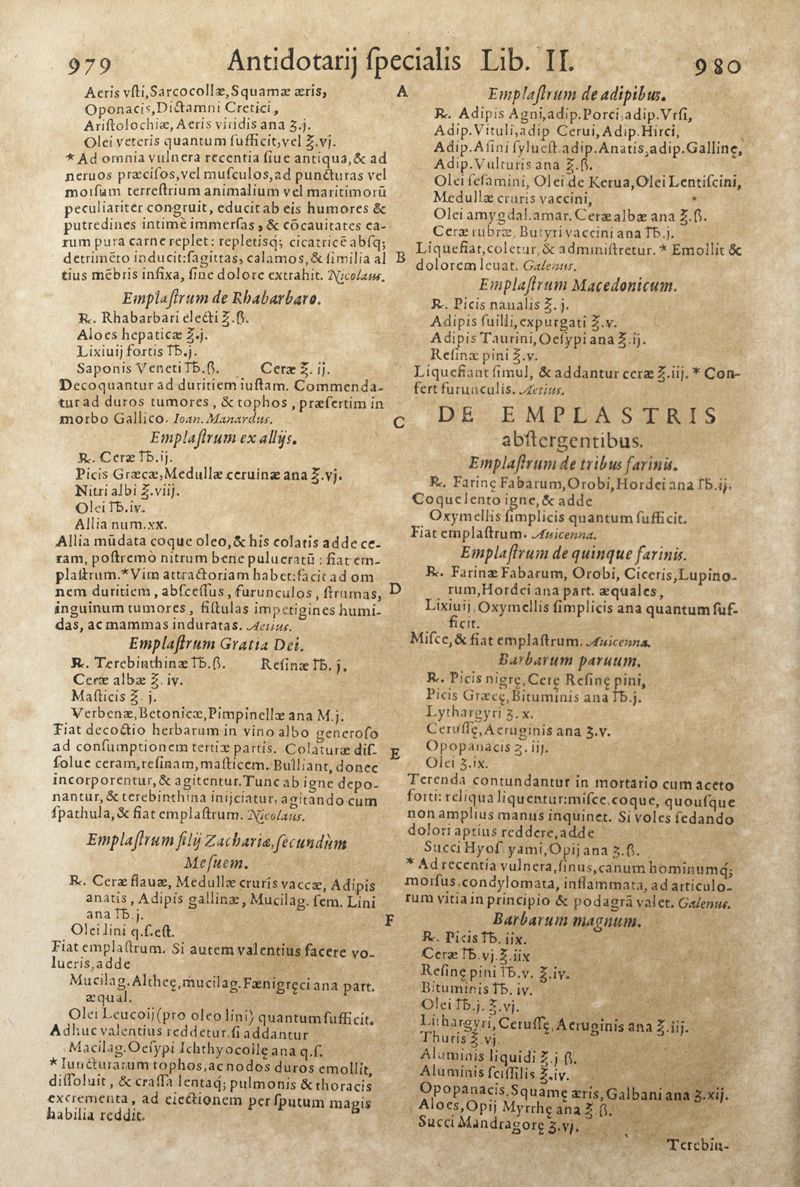 979
Antidotarij ſpecialis Lib. II.
980
Aeris vſti,Sarcocollæ,Squamæ æris,
Oponacis,Dictamni Cretici,
Ariſtolochiæ,Aeris viridis ana ʒ.j.
Olei veteris quantum ſufficit,vel ℥.vj.
*Ad omnia vulnera recentia ſiue antiqua,& ad
neruos præciſos,vel muſculos,ad puncturas vel
morſum terreſtrium animalium vel maritimorū
peculiariter congruit, educit ab eis humores &
putredines intimè immerſas, & cōcauitates ea-
rum pura carne replet: repletisq; cicatricē abſq;
detrimēto inducit:ſagittas, calamos,& ſimilia al
tius mēbris infixa, ſine dolore extrahit. Nicolaus.
Emplaſtrum de Rhabarbaro.
℞. Rhabarbari electi ℥.ß.
Aloes hepaticæ ℥.j.
Lixiuij fortis ℔.j.
Saponis Veneti ℔.ß. Ceræ ℥. ij.
Decoquantur ad duritiem iuſtam. Commenda-
tur ad duros tumores, & tophos, præſertim in
morbo Gallico. Ioan.Manardus.
Emplaſtrum ex allijs.
℞. Ceræ ℔.ij.
Picis Græcæ,Medullæ ceruinæ ana ℥.vj.
Nitri albi ℥.viij.
Olei ℔.iv.
Allia num.xx.
Allia mūdata coque oleo,& his colatis adde ce-
ram, poſtremò nitrum bene pulueratū : fiat em-
plaſtrum.*Vim attractoriam habet:facit ad om
nem duritiem, abſceſſus, furunculos, ſtrumas,
inguinum tumores, fiſtulas impetigines humi-
das, ac mammas induratas. Aetius.
Emplaſtrum Gratia Dei.
℞. Terebinthinæ ℔.ß. Reſinæ ℔. j.
Ceræ albæ ℥. iv.
Maſticis ℥. j.
Verbenæ,Betonicæ,Pimpinellæ ana M.j.
Fiat decoctio herbarum in vino albo generoſo
ad conſumptionem tertiæ partis. Colaturæ diſ-
ſolue ceram,reſinam,maſticem. Bulliant, donec
incorporentur,& agitentur.Tunc ab igne depo-
nantur,& terebinthina inijciatur, agitando cum
ſpathula,& fiat emplaſtrum. Nicolaus.
Emplaſtrum filij Zachariæ,ſecundùm
Meſuem.
℞. Ceræ flauæ, Medullæ cruris vaccæ, Adipis
anatis, Adipis gallinæ, Mucilag. ſem. Lini
ana ℔.j.
Olei lini q.ſ.eſt.
Fiat emplaſtrum. Si autem valentius facere vo-
lueris,adde
Mucilag.Altheę,mucilag.Fænigręci ana part.
æqual.
Olei Leucoij(pro oleo lini) quantum ſufficit.
Adhuc valentius reddetur,ſi addantur
Macilag.Oeſypi Ichthyocollę ana q.ſ.
*Iuncturarum tophos,ac nodos duros emollit,
diſſoluit, & craſſa lentaq; pulmonis & thoracis
excrementa, ad eiectionem per ſputum magis
habilia reddit.
A
Emplaſtrum de adipibus.
℞. Adipis Agni,adip.Porci,adip.Vrſi,
Adip.Vituli,adip Cerui,Adip.Hirci,
Adip.Aſini ſylueſt.adip.Anatis,adip.Gallinę,
Adip.Vulturis ana ℥.ß.
Olei ſeſamini, Olei de Kerua,Olei Lentiſcini,
Medullæ cruris vaccini,
Olei amygdal.amar.Ceræ albæ ana ℥.ß.
Ceræ rubræ, Butyri vaccini ana ℔.j.
Liquefiat,coletur,& adminiſtretur. * Emollit &
B
dolorem leuat. Galenus.
Emplaſtrum Macedonicum.
℞. Picis naualis ℥. j.
Adipis ſuilli,expurgati ℥.v.
Adipis Taurini,Oeſypi ana ℥.ij.
Reſinæ pini ℥.v.
Liquefiant ſimul, & addantur ceræ ℥.iij. * Con-
fert furunculis. Aetius.
C
DE EMPLASTRIS
abſtergentibus.
Emplaſtrum de tribus farinis.
℞. Farinę Fabarum,Orobi,Hordei ana ℔.ij.
Coque lento igne,& adde
Oxymellis ſimplicis quantum ſufficit.
Fiat emplaſtrum. Auicenna.
Emplaſtrum de quinque farinis.
℞. Farinæ Fabarum, Orobi, Ciceris,Lupino-
D
rum,Hordei ana part. æquales,
Lixiuij,Oxymellis ſimplicis ana quantum ſuf-
ficit.
Miſce,& fiat emplaſtrum. Auicenna.
Barbarum paruum.
℞. Picis nigrę,Cerę Reſinę pini,
Picis Græcę,Bituminis ana ℔.j.
Lythargyri ʒ.x.
Ceruſſę,Aeruginis ana ʒ.v.
E
Opopanacis ʒ.iij.
Olei ʒ.ix.
Terenda contundantur in mortario cum aceto
forti: reliqua liquentur:miſce,coque, quouſque
non amplius manus inquinet. Si voles ſedando
dolori aptius reddere,adde
Succi Hyoſ yami,Opij ana ʒ.ß.
* Ad recentia vulnera,ſinus,canum hominumq;
morſus,condylomata, inflammata, ad articulo-
rum vitia in principio & podagrā valet. Galenus.
F
Barbarum magnum.
℞. Picis ℔. iix.
Ceræ ℔.vj.℥.iix
Reſinę pini ℔.v. ℥.iv.
Bituminis ℔. iv.
Olei ℔.j.℥.vj.
Lithargyri,Ceruſſę,Aeruginis ana ℥.iij.
Thuris ℥.vj.
Aluminis liquidi ℥.j ß.
Aluminis ſciſſilis ℥.iv.
Opopanacis,Squamę æris,Galbani ana ʒ.xij.
Aloes,Opij Myrrhę ana ℥ ß.
Succi Mandragorę ʒ.vj.
Terebin-